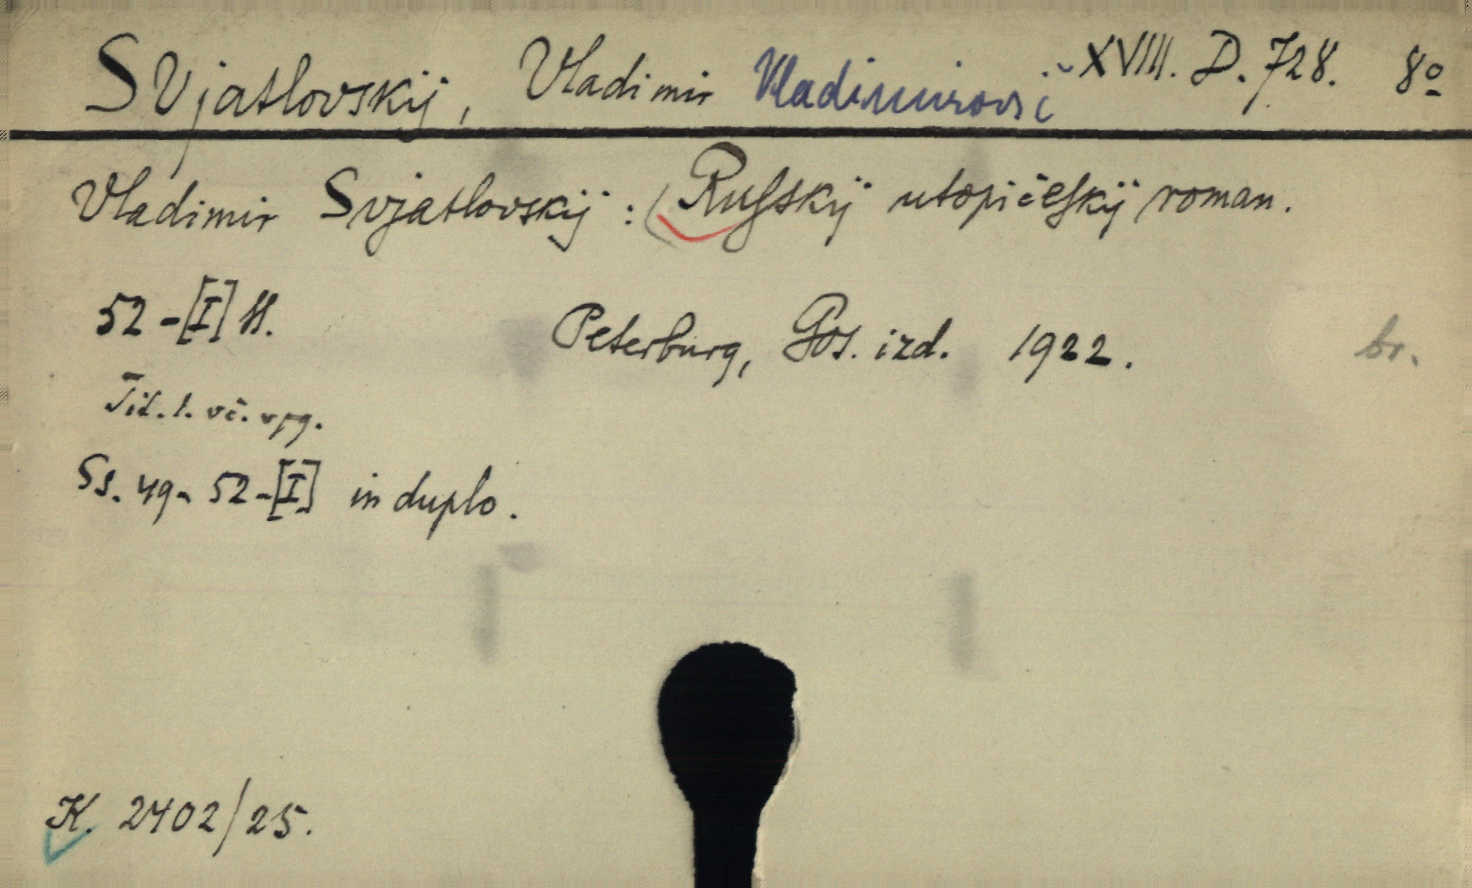 Svjatlovskij, Vladimir Vladimirovič XVIII. D. 728. 8º
Vladimir Svjatlovskij: (Russkij utopičeskij roman.
52-[I] ll. Peterburg, Gos. izd. 1922. br.
Tit. l. vč. vpg.
Ss. 49-52-[I] in duplo.
K. 2402/25.